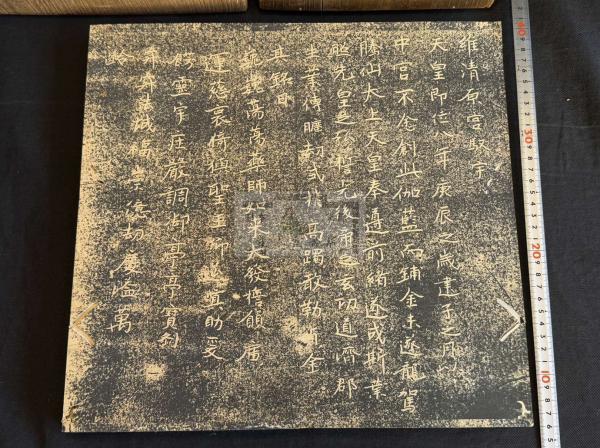 維清原宮馭宇
天皇即位八年庚辰之歲建子之月以
中宮不悆創此伽藍而鋪金未遂龍駕
騰仙大上天皇奉遵前緒遂成斯業
照先皇之弘誓光後帝之玄功道濟郡
生業傳曠劫式於高躅敢勒貞金
其銘曰
巍巍蕩蕩藥師如來大發誓願廣
運慈哀猗歟聖王仰延冥助爰
餝靈宇莊嚴調御亭亭寶刹
寂寂法城福崇億劫慶溢萬
齡
30
20
10